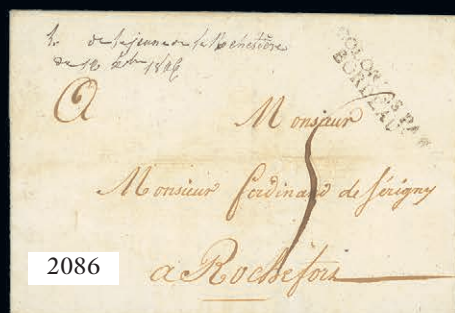 de 18 1826
COLONIES PAR
BORDEAUX
Monsieur
Monsieur ferdinand de Sérigny
5
a Rochefort
2086